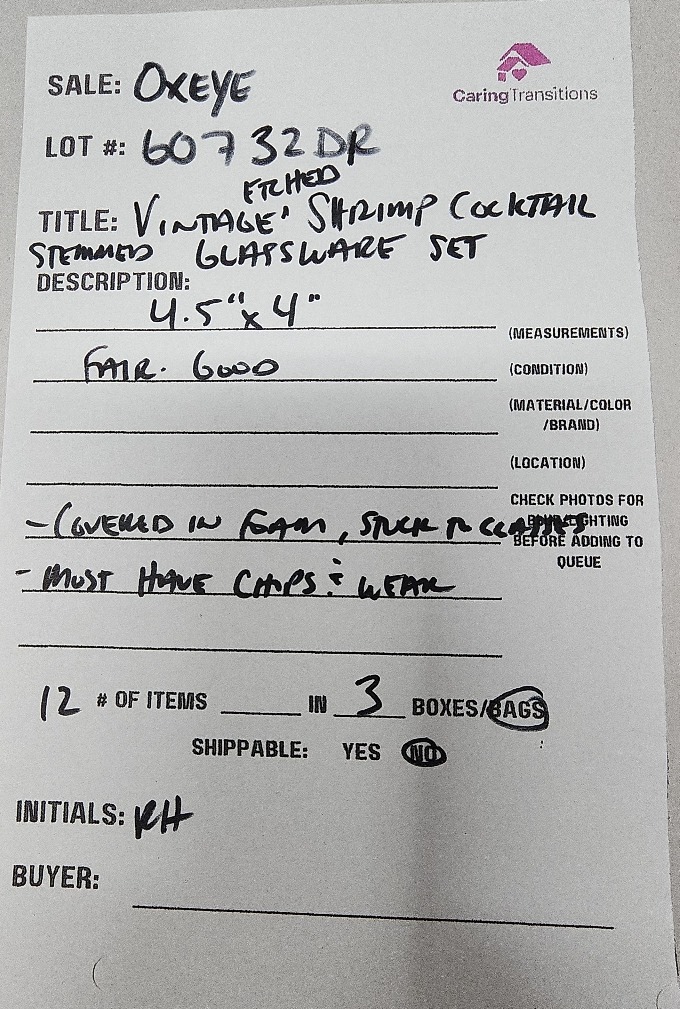 SALE: OXEYE
CaringTransitions
LOT #: 60732DR
ETCHED
TITLE: VINTAGE' SHRIMP COCKTAIL
STEMMED GLASSWARE SET
DESCRIPTION:
4.5" x 4"
(MEASUREMENTS)
FAIR. GOOD
(CONDITION)
(MATERIAL/COLOR
/BRAND)
(LOCATION)
CHECK PHOTOS FOR
- COVERED IN FOAM, STUCK TO GLASSES
BEFORE ADDING TO
QUEUE
- MOST HAVE CHIPS & WEAR
12 # OF ITEMS ____ IN 3 BOXES/BAGS
SHIPPABLE: YES NO
INITIALS: RH
BUYER: